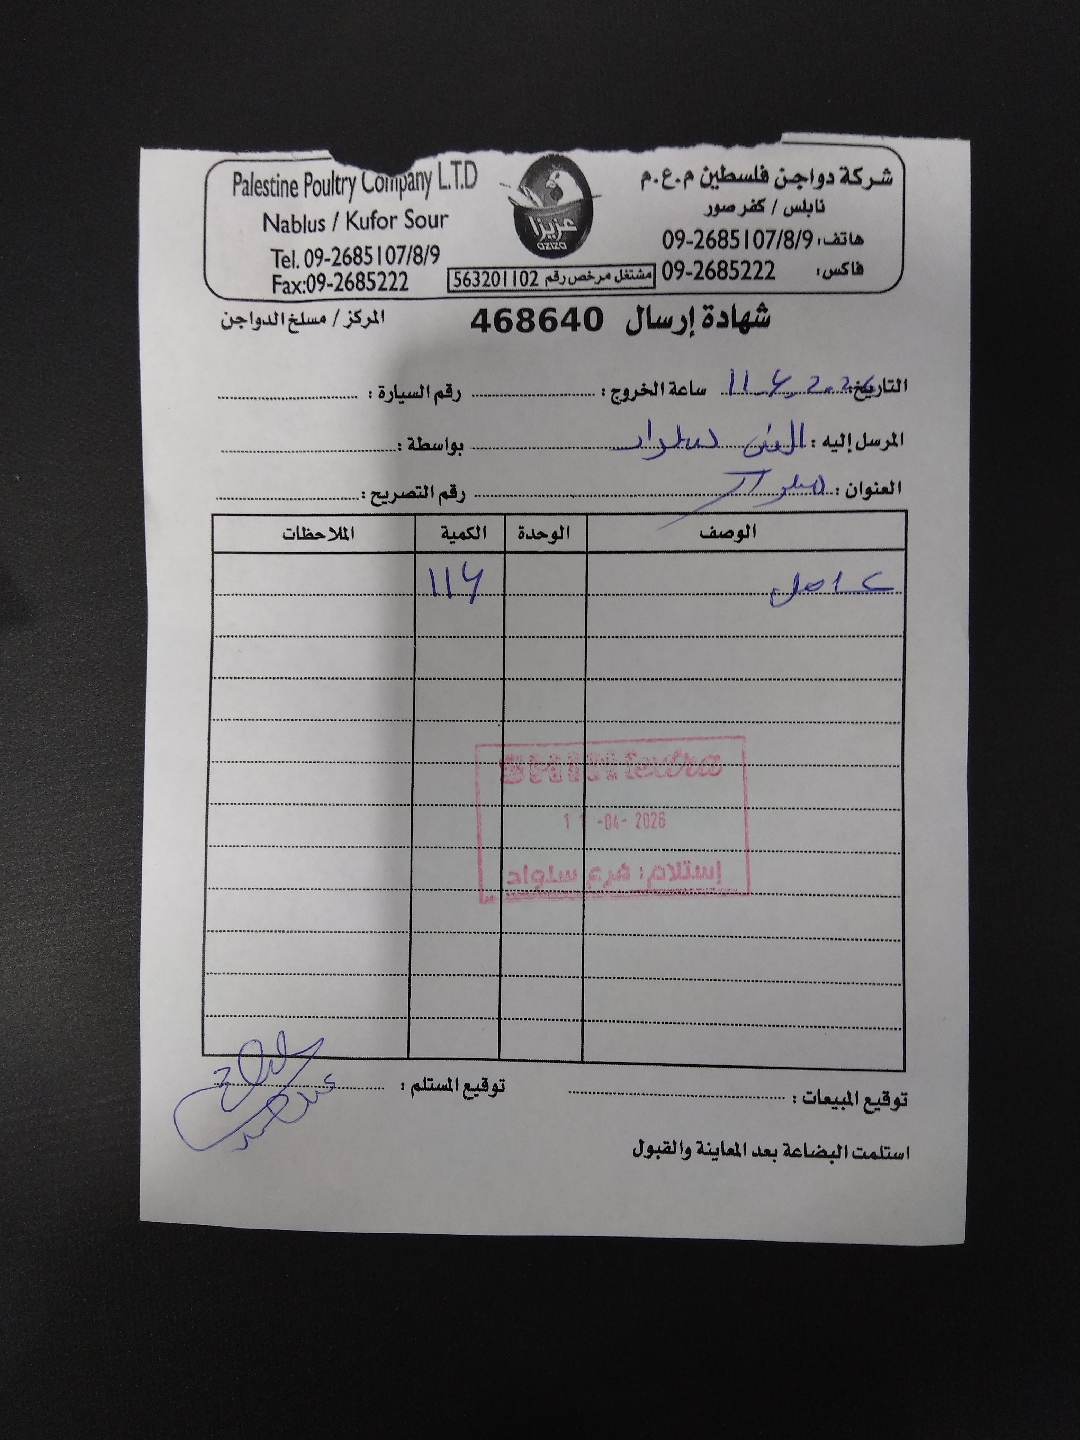 Palestine Poultry Company L.T.D
Nablus / Kufor Sour
Tel. 09-2685107/8/9
Fax:09-2685222
عزيزا
aziza
مشتغل مرخص رقم 563201102
شركة دواجن فلسطين م.ع.م
نابلس / كفر صور
هاتف: 09-2685107/8/9
فاكس: 09-2685222
شهادة إرسال 468640
المركز / مسلخ الدواجن
التاريخ: 11.4.2026 ساعة الخروج : رقم السيارة :
المرسل إليه : سلواد بواسطة :
العنوان : سلواد رقم التصريح :
الوصف الوحدة الكمية الملاحظات
كامل 114
extra
11 -04- 2026
إستلام: فرع سلواد
توقيع المبيعات : توقيع المستلم :
استلمت البضاعة بعد المعاينة والقبول